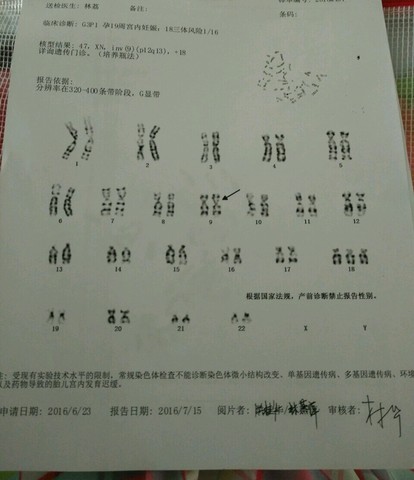 送检医生：林磊 备注：
条码：
临床诊断：G3P1 孕19周宫内妊娠；18三体风险1/16
核型结果：47, XN, inv(9)(p12q13), +18
详询遗传门诊。（培养瓶法）
报告依据：
分辨率在320-400条带阶段，G显带
1 2 3 4 5
6 7 8 9 10 11 12
13 14 15 16 17 18
根据国家法规，产前诊断禁止报告性别。
19 20 21 22 X Y
：受现有实验技术水平的限制，常规染色体检查不能诊断染色体微小结构改变、单基因遗传病、多基因遗传病、环境
及药物导致的胎儿宫内发育迟缓。
申请日期：2016/6/23 报告日期：2016/7/15 阅片者： 审核者：